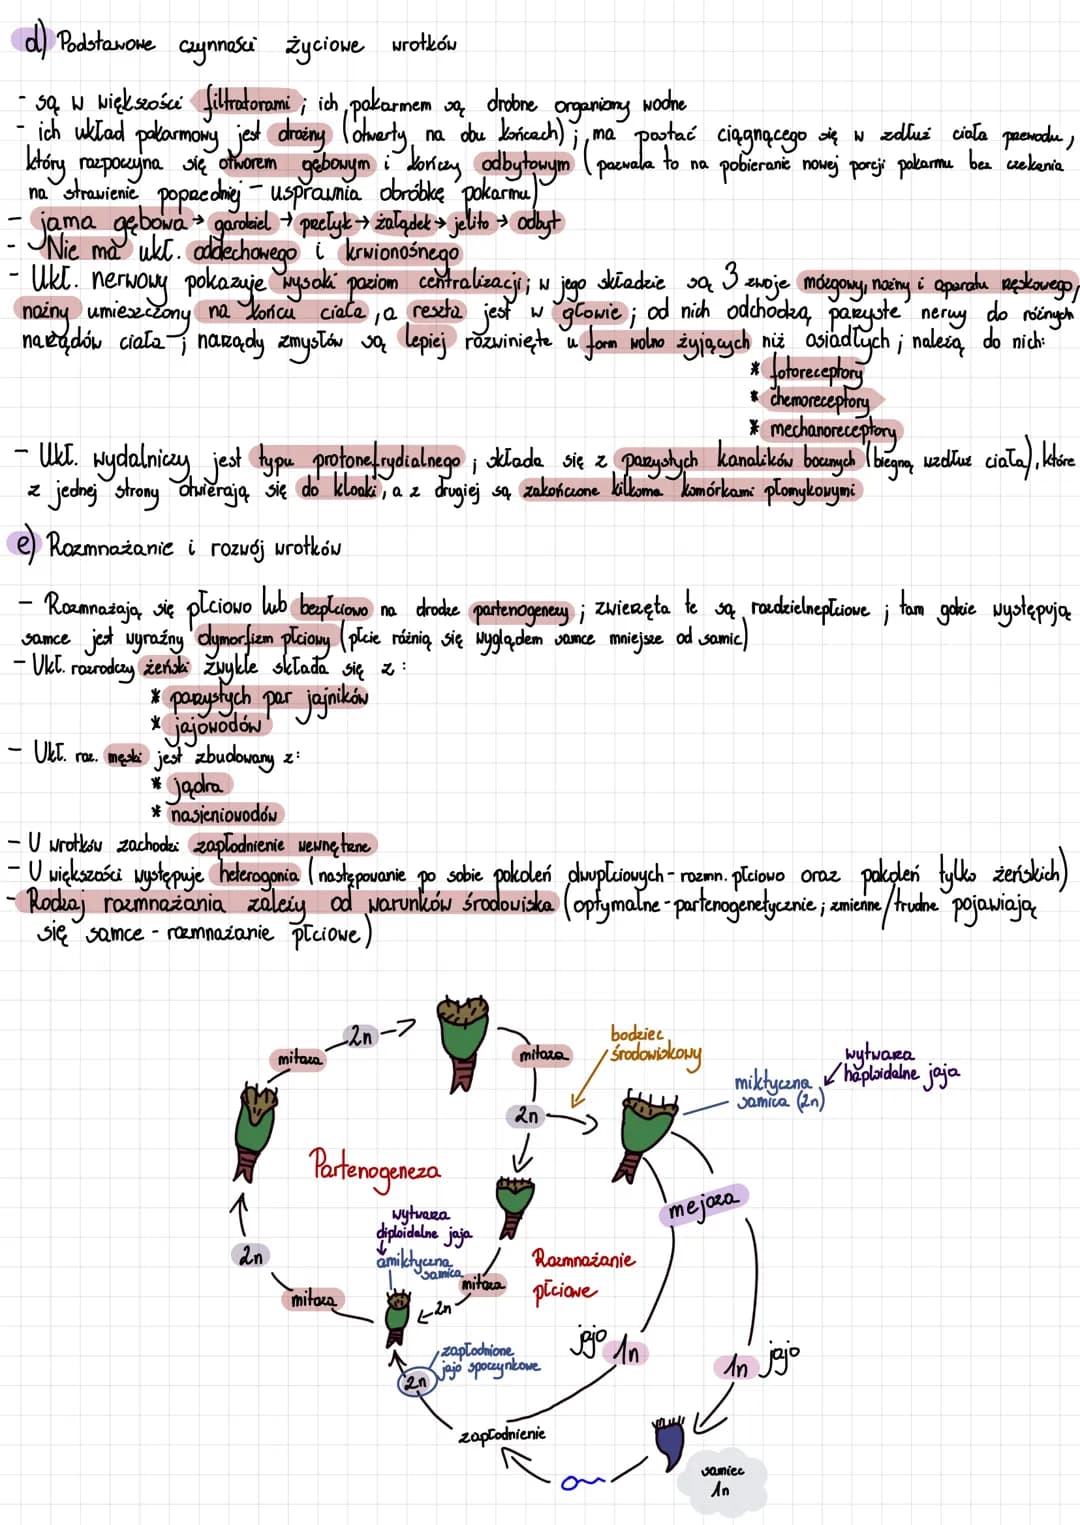 d) Podstawowe czynności życiowe wrotków
- są w większości filtratorami ; ich pokarmem są drobne organizmy wodne
- ich układ pokarmowy jest drożny (otwarty na obu końcach) ; ma postać ciągnącego się w zdłuż ciała przewodu,
który rozpoczyna się otworem gębowym i kończy odbytowym (pozwala to na pobieranie nowej porcji pokarmu bez czekania
na strawienie poprzedniej - usprawnia obróbkę pokarmu)
- jama gębowa → gardziel → przełyk → żołądek → jelito → odbyt
- Nie ma ukł. oddechowego i krwionośnego
- Ukł. nerwowy pokazuje wysoki poziom centralizacji ; w jego składzie są 3 zwoje mózgowy, nożny i aparatu rzęskowego,
nożny umieszczony na końcu ciała, a reszta jest w głowie ; od nich odchodzą parzyste nerwy do różnych
narządów ciała ; narządy zmysłów są lepiej rozwinięte u form wolno żyjących niż osiadłych ; należą do nich:
* fotoreceptory
* chemoreceptory
* mechanoreceptory
- Ukł. wydalniczy jest typu protonefrydialnego ; składa się z parzystych kanalików bocznych (biegną wzdłuż ciała), które
z jednej strony otwierają się do kloaki, a z drugiej są zakończone kilkoma komórkami płomykowymi
e) Rozmnażanie i rozwój wrotków
- Rozmnażają się płciowo lub bezpłciowo na drodze partenogenezy ; zwierzęta te są rozdzielnepłciowe ; tam gdzie występują
samce jest wyraźny dymorfizm płciowy (płcie różnią się wyglądem samce mniejsze od samic)
- Ukł. rozrodczy żeński zwykle składa się z :
* parzystych par jajników
* jajowodów
- Ukł. roz. męski jest zbudowany z:
* jądra
* nasieniowodów
- U wrotków zachodzi zapłodnienie wewnętrzne
- U większości występuje heterogonia (następowanie po sobie pokoleń dwupłciowych - rozmn. płciowo oraz pokoleń tylko żeńskich)
- Rodzaj rozmnażania zależy od warunków środowiska (optymalne - partenogenetycznie ; zmienne/trudne pojawiają
się samce - rozmnażanie płciowe)
2n
mitoza
mitoza
bodziec
środowiskowy
wytwarza
haploidalne jaja
miktyczna
samica (2n)
2n
Partenogeneza
mejoza
wytwarza
diploidalne jaja
amiktyczna
samica
2n
Rozmnażanie
płciowe
mitoza
mitoza
2n
jajo 1n
1n jajo
zapłodnione
jajo spoczynkowe
2n
zapłodnienie
samiec
1n